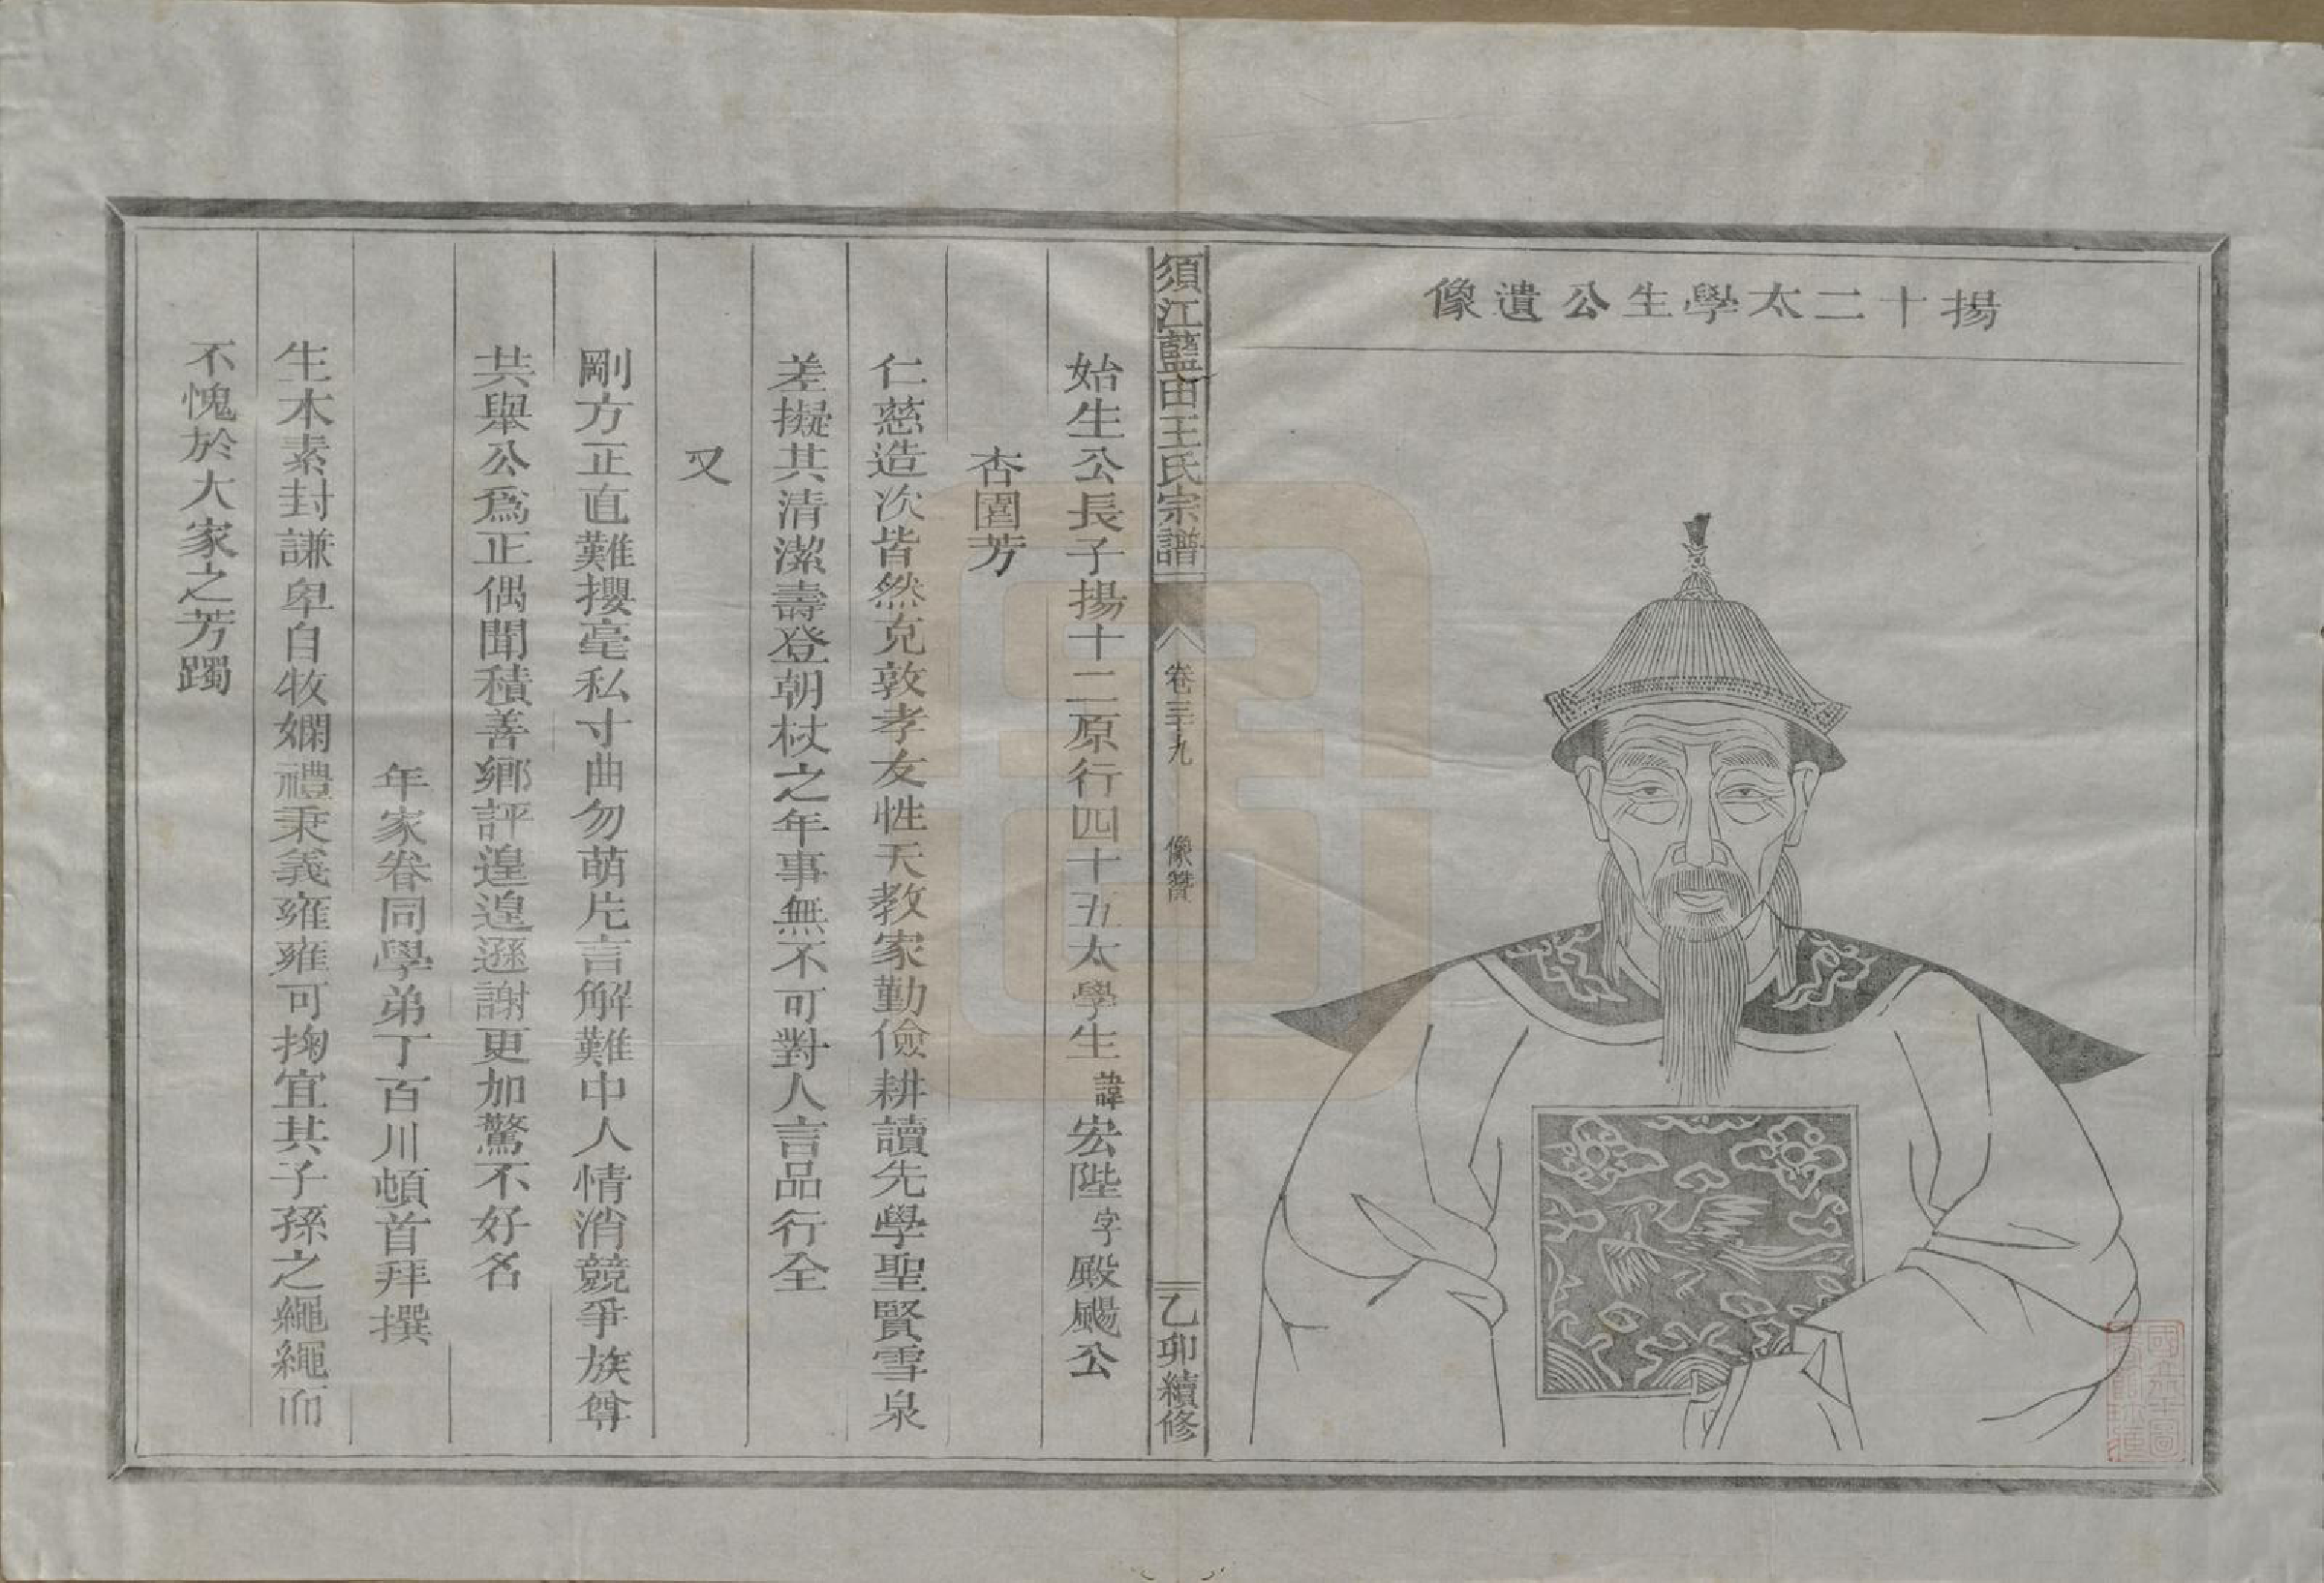 揚十二太學生公遺像
須江藍田王氏宗譜 卷三十九 像贊 乙卯續修
始生公長子揚十二原行四十五太學生諱宏陛字殿颺公
杏園芳
仁慈造次皆然克敦孝友性天教家勤儉耕讀先學聖賢雪泉
差擬共清潔壽登朝杖之年事無不可對人言品行全
又
剛方正直難攖毫私寸曲勿萌片言解難中人情消競爭族尊
共舉公爲正偶聞積善鄉評遑遑遜謝更加驚不好名
年家眷同學弟丁百川頓首拜撰
生木素封謙卑自牧嫻禮秉義雍雍可掬宜其子孫之繩繩而
不愧於大家之芳躅